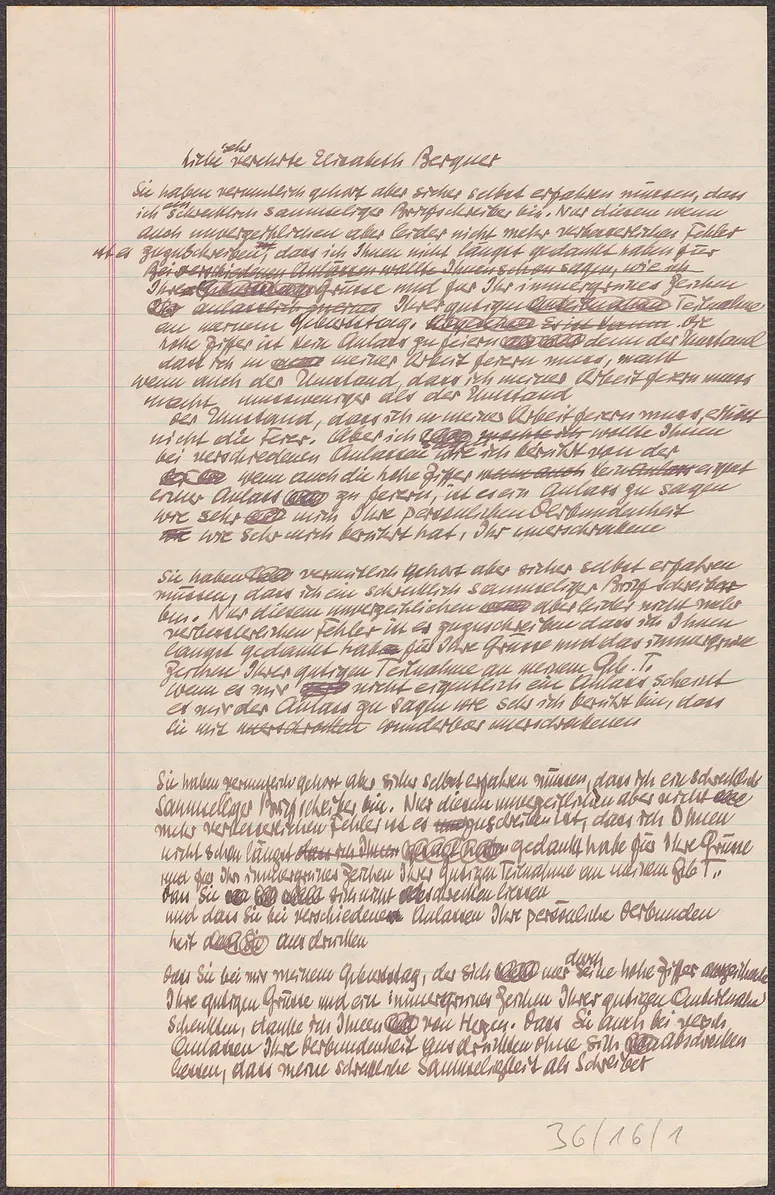 Liebe sehr verehrte Elisabeth Bergner
Sie haben vermutlich gehört aber sicher selbst erfahren müssen, dass
ich ein schrecklich saumseliger Briefschreiber bin. Nur diesem wenn
auch unverzeihlichen aber leider nicht mehr verbesserlichen Fehler
ist es zuzuschreiben, dass ich Ihnen nicht längst gedankt habe für
Bei verschiedenen Anlässen wollte Ihnen schon sagen, wie ich
Ihre Grüsse und für Ihr immergrünes Zeichen
anlässlich meines Ihrer gütigen Teilnahme
an meinem Geburtstag. Die
hohe Ziffer ist kein Anlass zu feiern denn der Umstand
dass ich in meiner Arbeit feiern muss, macht
wenn auch der Umstand, dass ich meiner Arbeit feiern muss
macht, umsoweniger als der Umstand
der Umstand, dass ich in meiner Arbeit feiern muss,
nicht die Feier. Aber ich möchte ich wollte Ihnen
bei verschiedenen Anlässen wie ich berührt von der
wenn auch die hohe Ziffer wenn auch kein Anlass
einer Anlass zu feiern, ist es ein Anlass zu sagen
wie sehr mich Ihre persönlichen Verbundenheit
wie sehr mich berührt hat, Ihr unerschrockene
Sie haben vermutlich gehört aber sicher selbst erfahren
müssen, dass ich ein schrecklich saumseliger Briefschreiber
bin. Nur diesem unverzeihlichen aber leider nicht mehr
verbesserlichen Fehler ist es zuzuschreiben dass ich Ihnen
längst gedankt habe für Ihre Grüsse und das immergrüne
Zeichen Ihrer gütigen Teilnahme an meinem Geb. T.
wenn es mir nicht eigentlich ein Anlass scheint
es mir der Anlass zu sagen wie sehr ich berührt bin, dass
Sie mit unerschrocken wunderbar unerschrockenen
Sie haben vermutlich gehört aber sicher selbst erfahren müssen, dass ich ein schrecklich
saumseliger Briefschreiber bin. Nur diesem unverzeihlichen aber nicht
mehr verbesserlichen Fehler ist es zuzuschreiben ist, dass ich Ihnen
nicht schon längst dass ich Ihnen gedankt habe für Ihre Grüsse
und für Ihr immergrünes Zeichen Ihrer gütigen Teilnahme an meinem Geb T.
dass Sie sich nicht abschrecken liessen
und dass Sie bei verschiedenen Anlässen Ihre persönliche Verbunden
heit ausdrücken
Dass Sie bei mir meinem Geburtstag, der sich nur durch seine hohe Ziffer auszeichnet
Ihre gütigen Grüsse und ein immergrünes Zeichen Ihrer gütigen Anteilnahme
schenkten, danke ich Ihnen von Herzen. Dass Sie auch bei versch.
Anlässen Ihre Verbundenheit ausdrückten ohne sich abschrecken
lassen, dass meine schreckliche Saumseligkeit als Schreiber
36/16/1